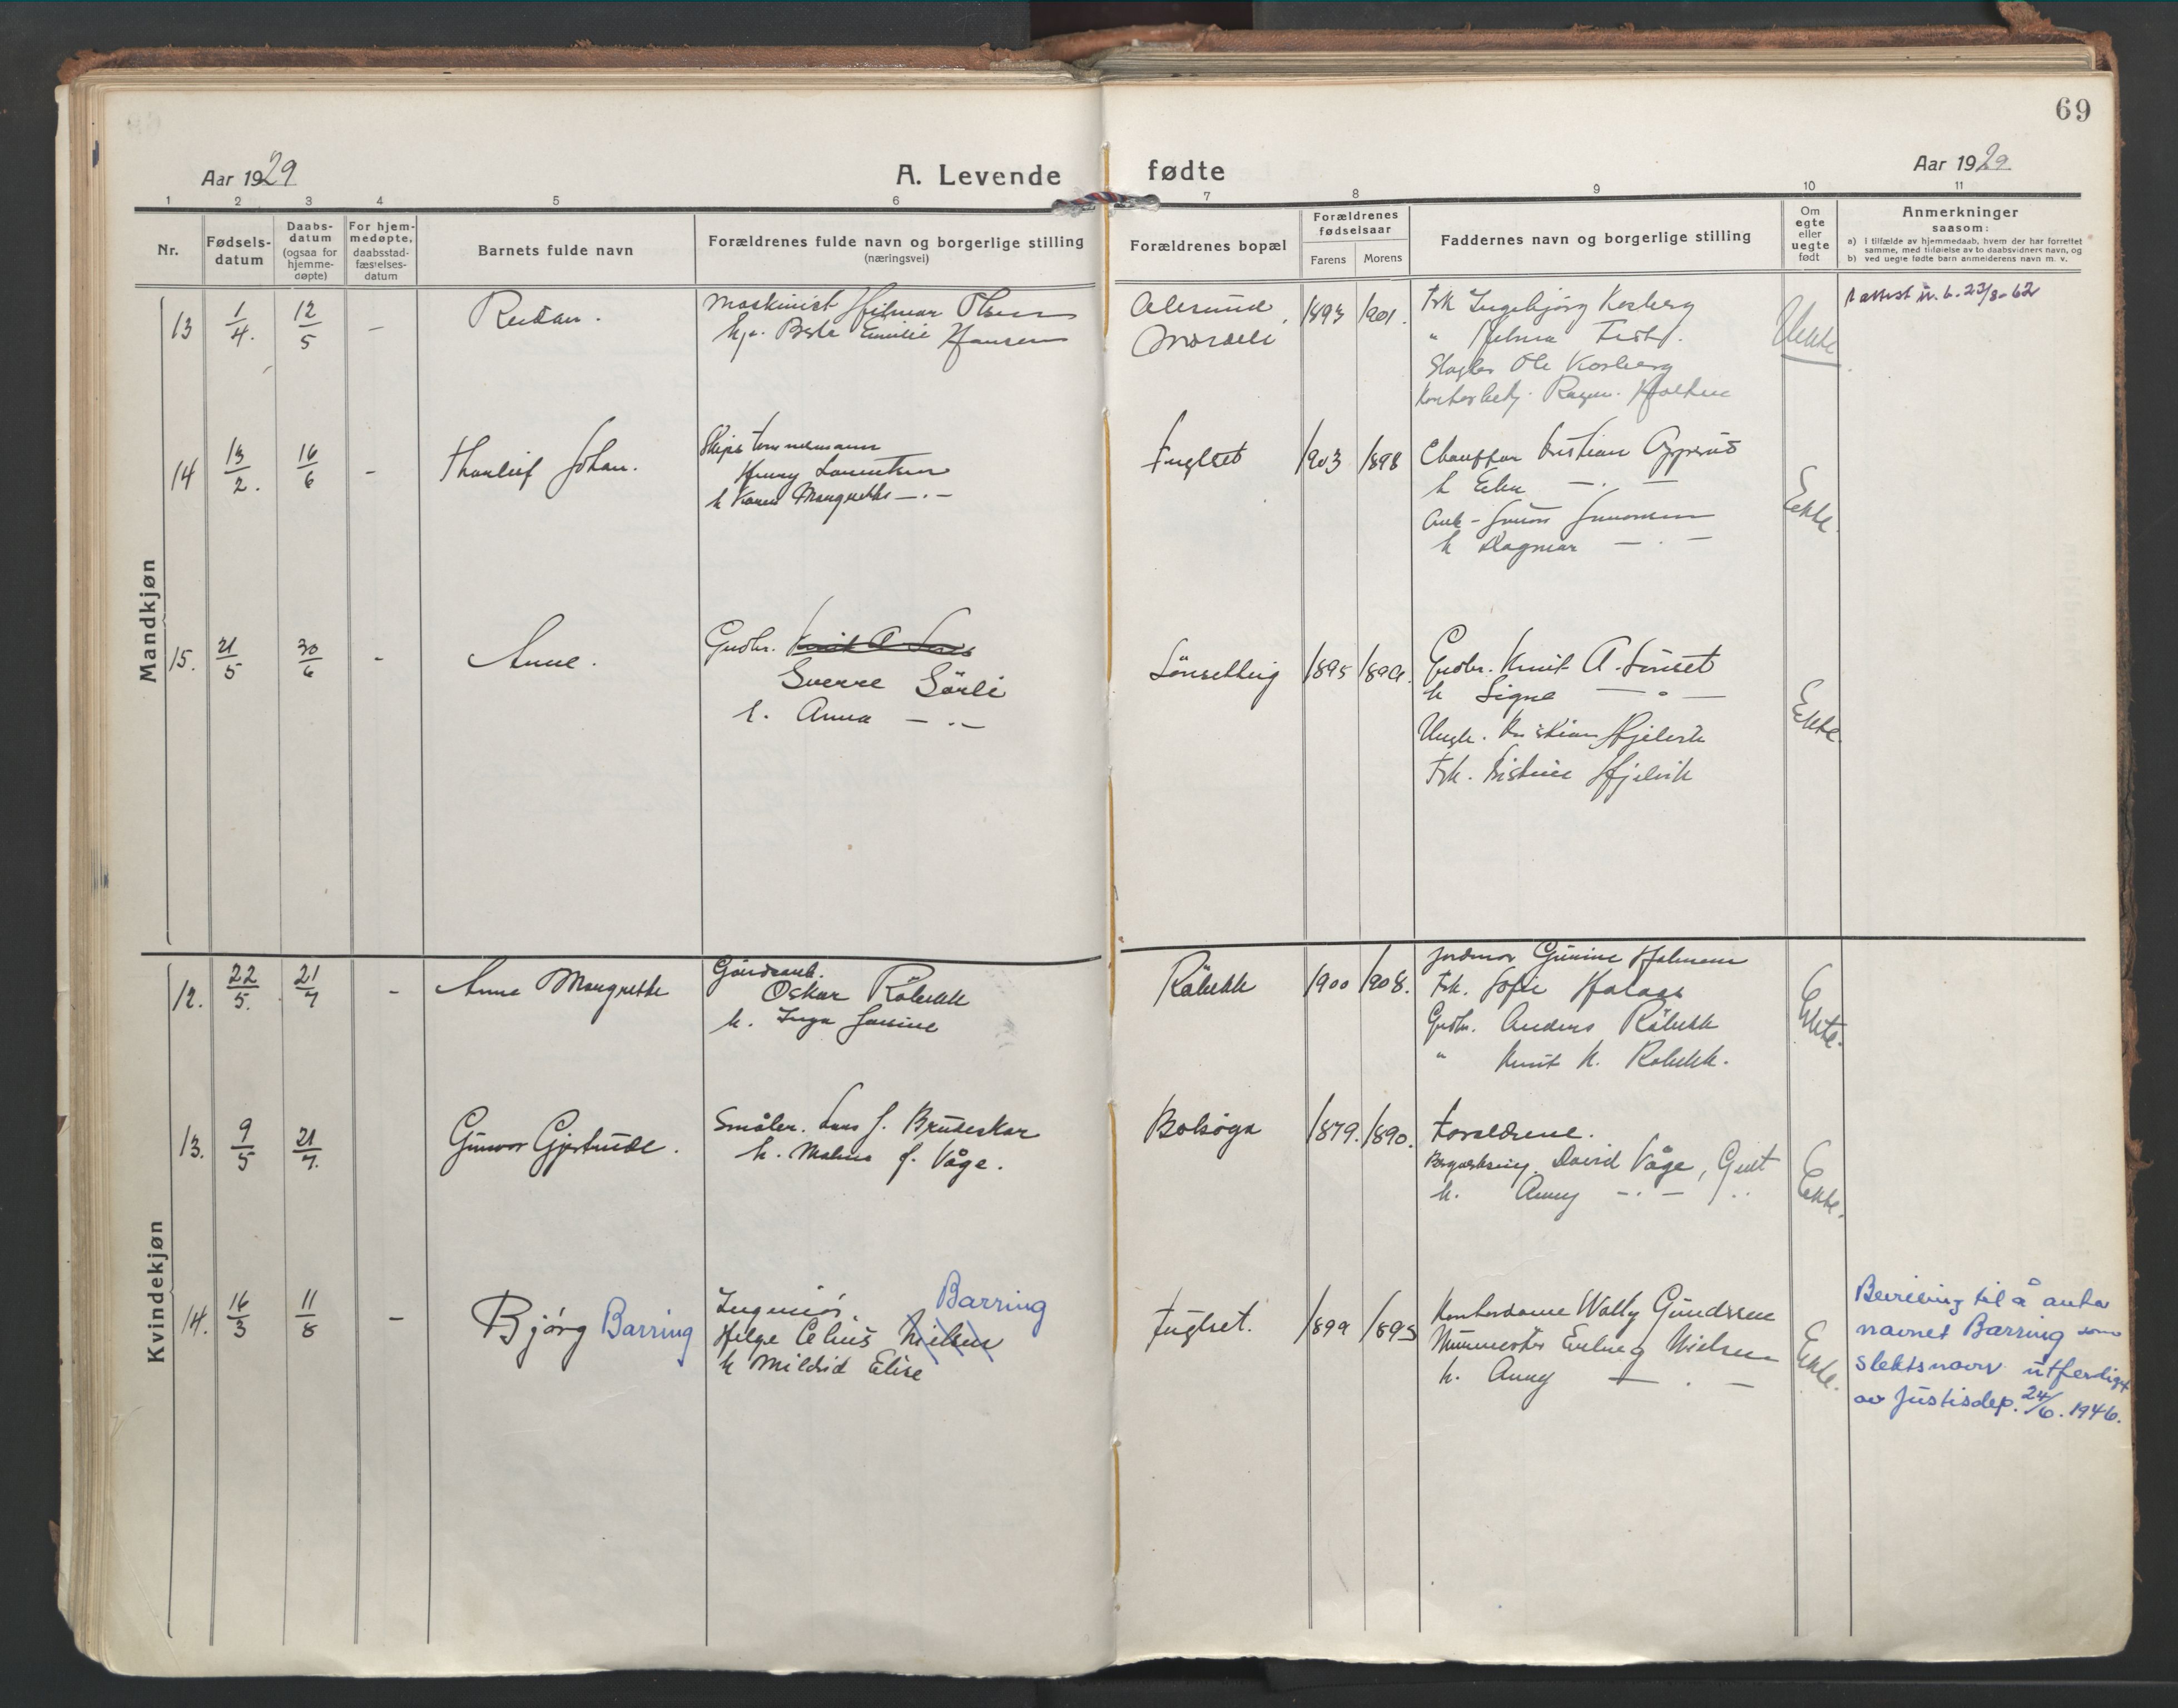 69
Aar 1929
A. Levende fødte
Aar 1929
1 2 3 4 5 6 7 8 9 10 11
Nr.
Fødsels-
datum
Daabs-
datum
(ogsaa for
hjemme-
døpte)
For hjem-
medøpte,
daabsstad-
fæstelses-
datum
Barnets fulde navn
Forældrenes fulde navn og borgerlige stilling
(næringsvei)
Forældrenes bopæl
Forældrenes
fødselsaar
Farens Morens
Faddernes navn og borgerlige stilling
Om
egte
eller
uegte
født
Anmerkninger
saasom:
a) i tilfælde av hjemmedaab, hvem der har forrettet
samme, med tilføielse av to daabsvidners navn, og
b) ved uegte fødte barn anmelderens navn m. v.
Mandkjøn
13 1/4. 12/5 –
Reidar.
Maskinist Hilmar Olsen
Emilie Hansen
Aalesund,
1893 1901.
Frk Ingebjørg Kosberg
"
Ole Kosberg
Uekte
23/8-62
14 13/2. 16/6 –
Thorleif Johan.
Skipstømmermann
Henny Lauritsen
h Karen Margrethe — . —
Fuglset
1903 1898
Chauffør Kristian
h — . —
h Dagmar — . —
Ekte.
15. 21/5 30/6 -
Anne.
Grdbr.
Sverre Sörli
h. Anna — . —
1895 1899.
Grdbr. Knut A.
h Signe — . —
Ungk. Kristian Hjelvik
Frk. Kristine Hjelvik
Ekte.
Kvindekjøn
12. 22/5. 21/7 -
Anne Margrethe
Gårdsarb.
Oskar Röbekk
h. Inga
Röbekk
1900 1908.
Jordmor Gunine
Frk. Sofie
Grdbr. Anders Röbekk
" Knut K. Röbekk.
Ekte.
13. 9/5 21/7.
Gunvor Gjertrude.
Småbr. Lars J. Brudeskar
h. f. Våge.
Bolsöya
1879. 1890.
Foreldrene.
David Våge,
h. Anny — . —
Ekte.
14. 16/3 11/8 –
Bjørg Barring
Ingeniør Barring
Helge Nielsen
h Mildrid Elise
Fuglset.
1899 1895
Kontordame Wally Gundersen
Murmester Nielsen
h. Anny — . —
Ekte.
Bevilling til å anta
navnet Barring som
slektsnavn utferdiget
av Justisdep. 24/6. 1946.